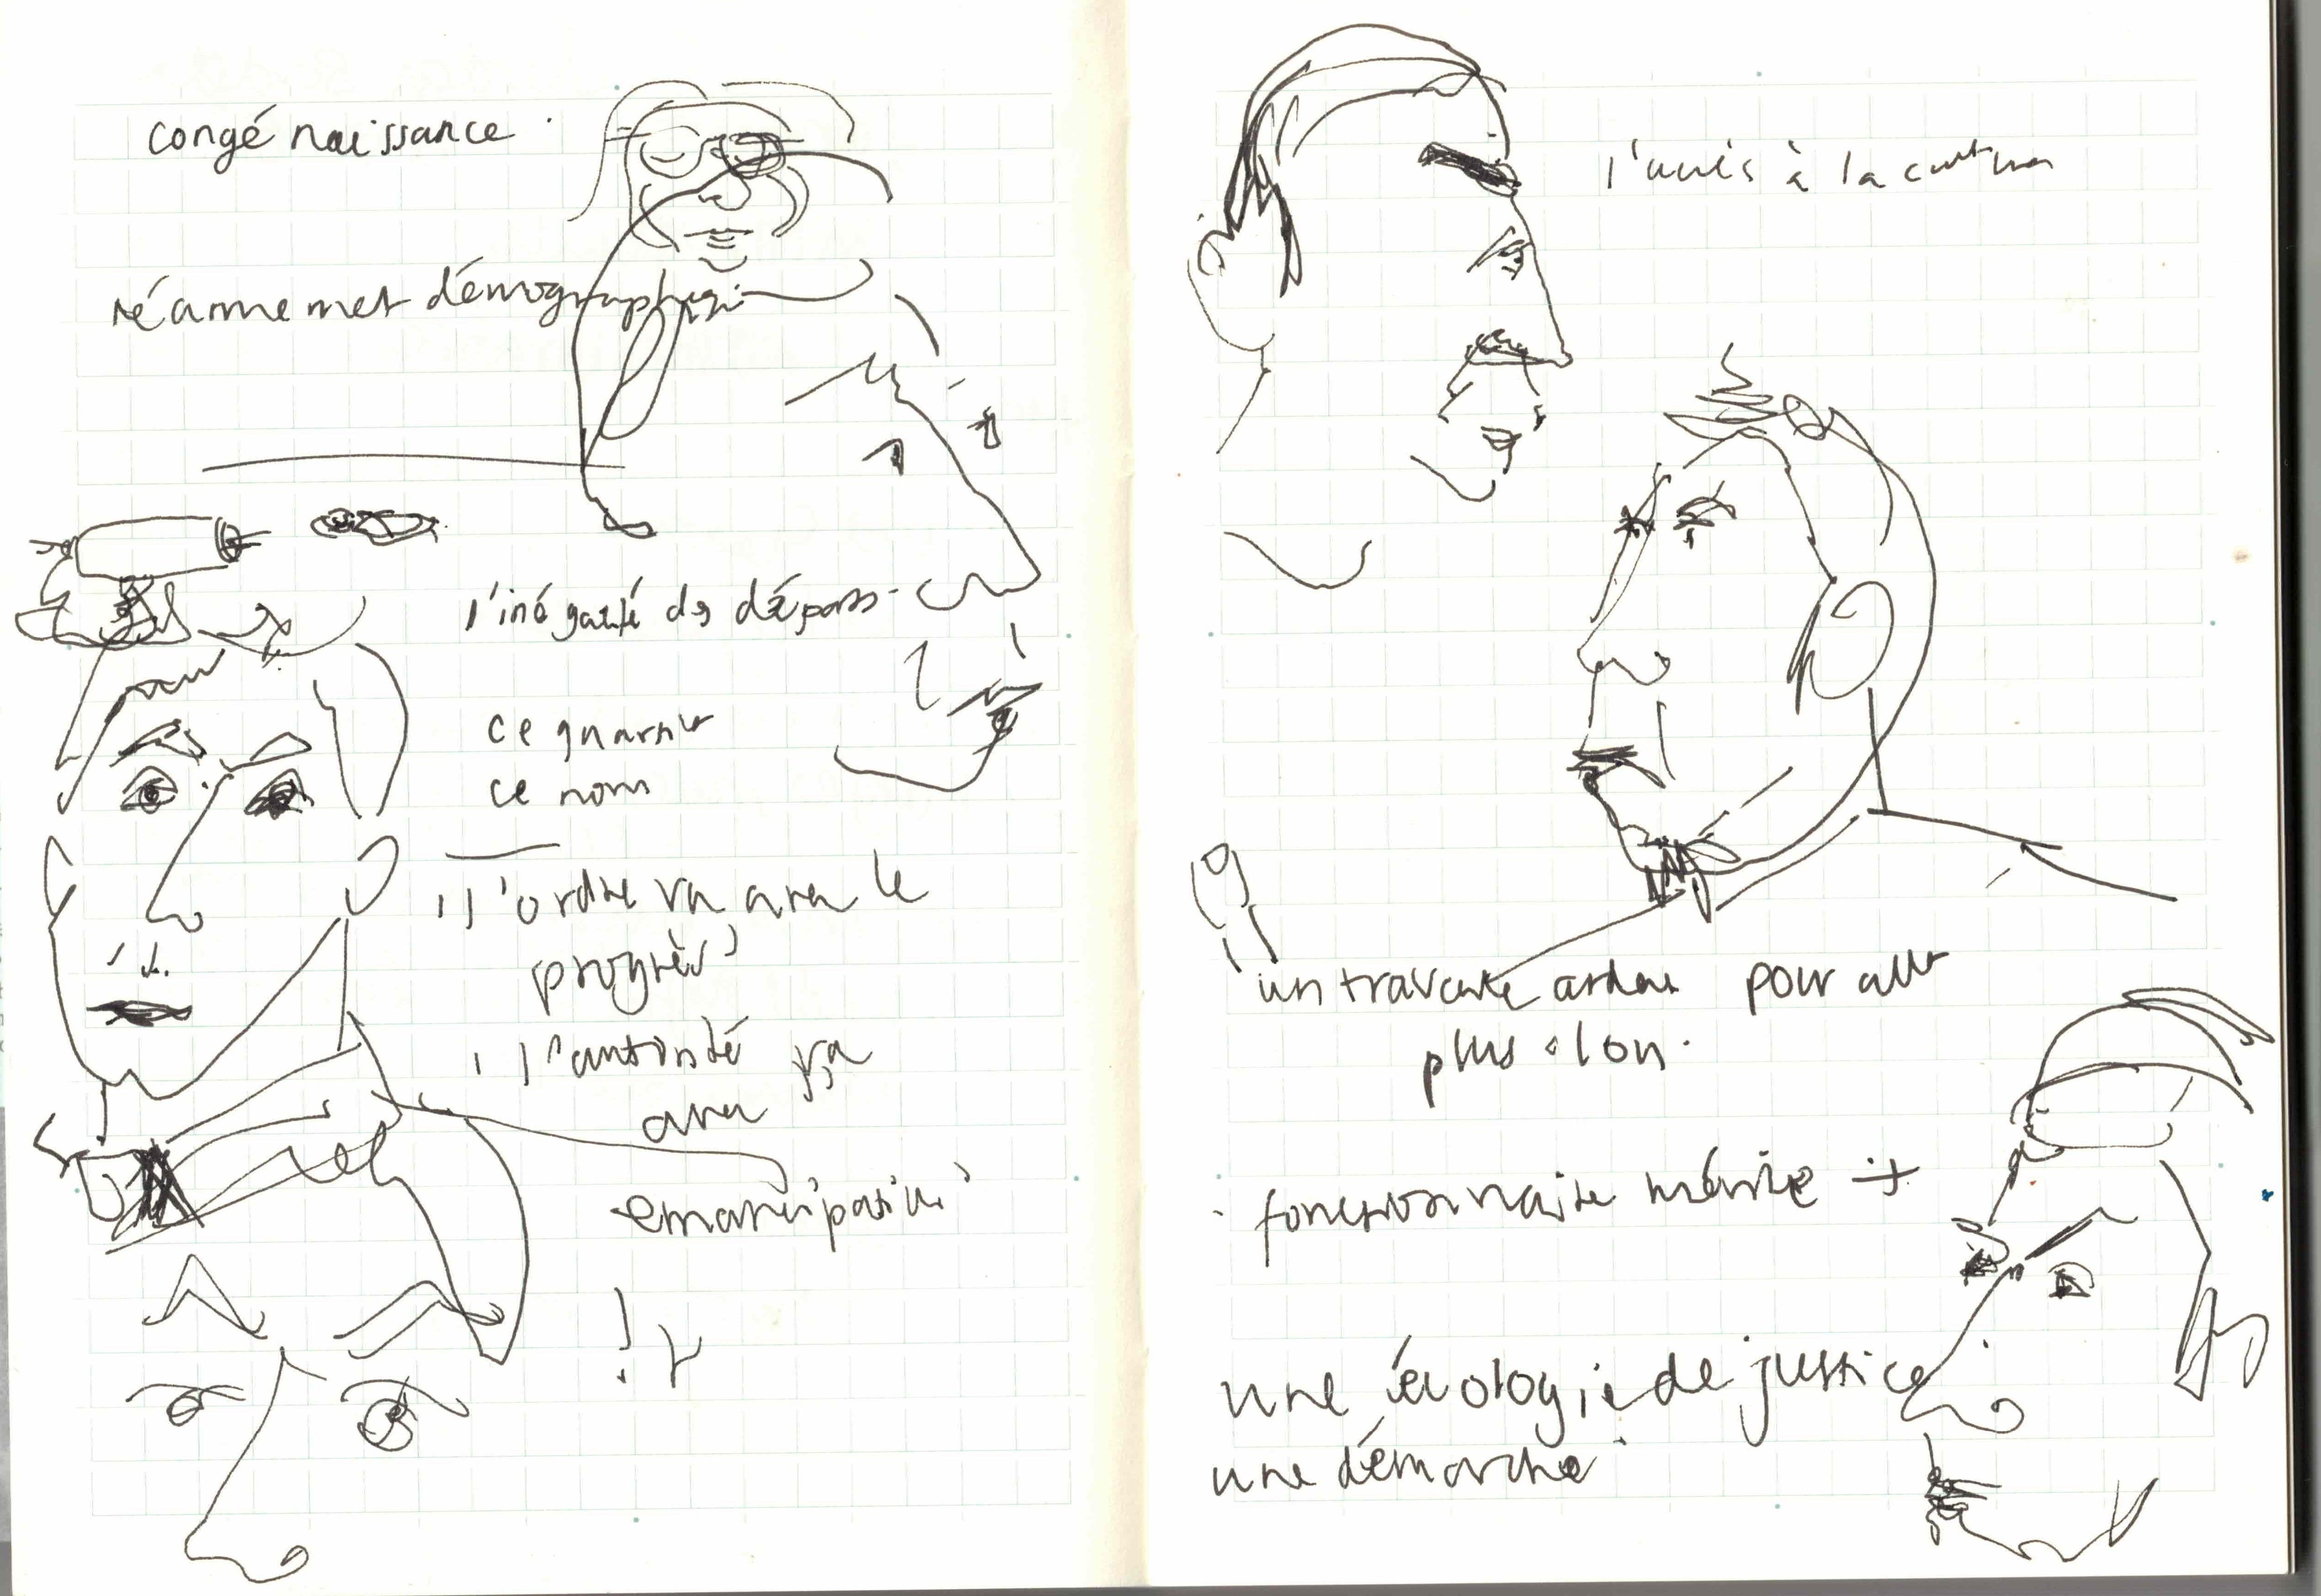 congé naissance
réarmemet démographiqu
l'inégalité ds départs
ce
ce nom
" l'ordre va avec le
progrès"
" l'autorité va
avec
émancipation"
! Y
l'accès à la cultur
un travail ardu pour aller
plus loin.
fonctionnaire mérite +
une écologie de justice
une démarche